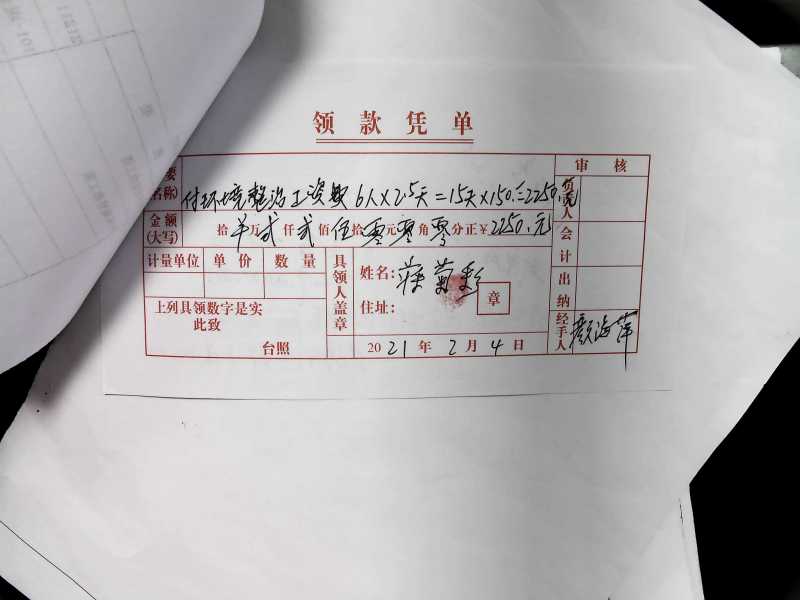 领款凭单
要 付环境整治工资款 6人×2.5天=15天×150.=2250.元
名称)
审核
负责人
金额(大写) 拾 万 贰 仟 贰 佰 伍 拾 零 元 零 角 零 分正¥2250.元
会计
计量单位 单价 数量
具领人盖章
姓名: 菊彩
章
住址:
出纳
上列具领数字是实
此致
台照
2021年2月4日
经手人 颜海萍